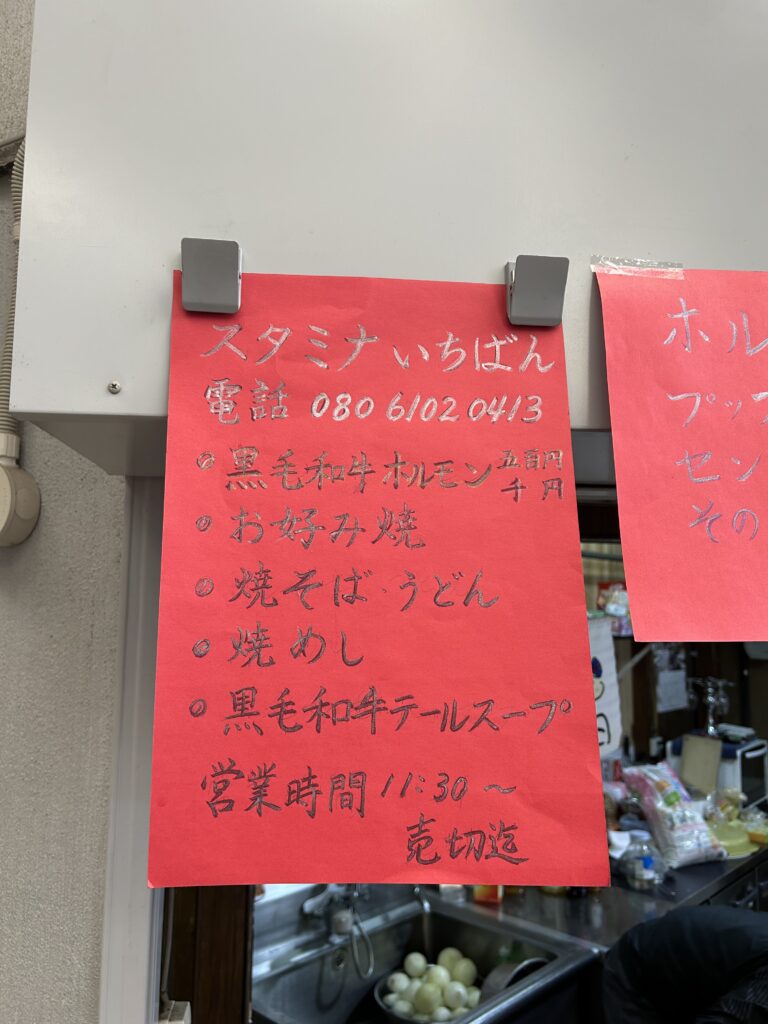 スタミナいちばん
電話 080 6102 0413
◦ 黒毛和牛ホルモン 五百円
千円
◦ お好み焼
◦ 焼そば・うどん
◦ 焼めし
◦ 黒毛和牛テールスープ
営業時間 11:30～
売切迄
ホル
プップ
セン
その